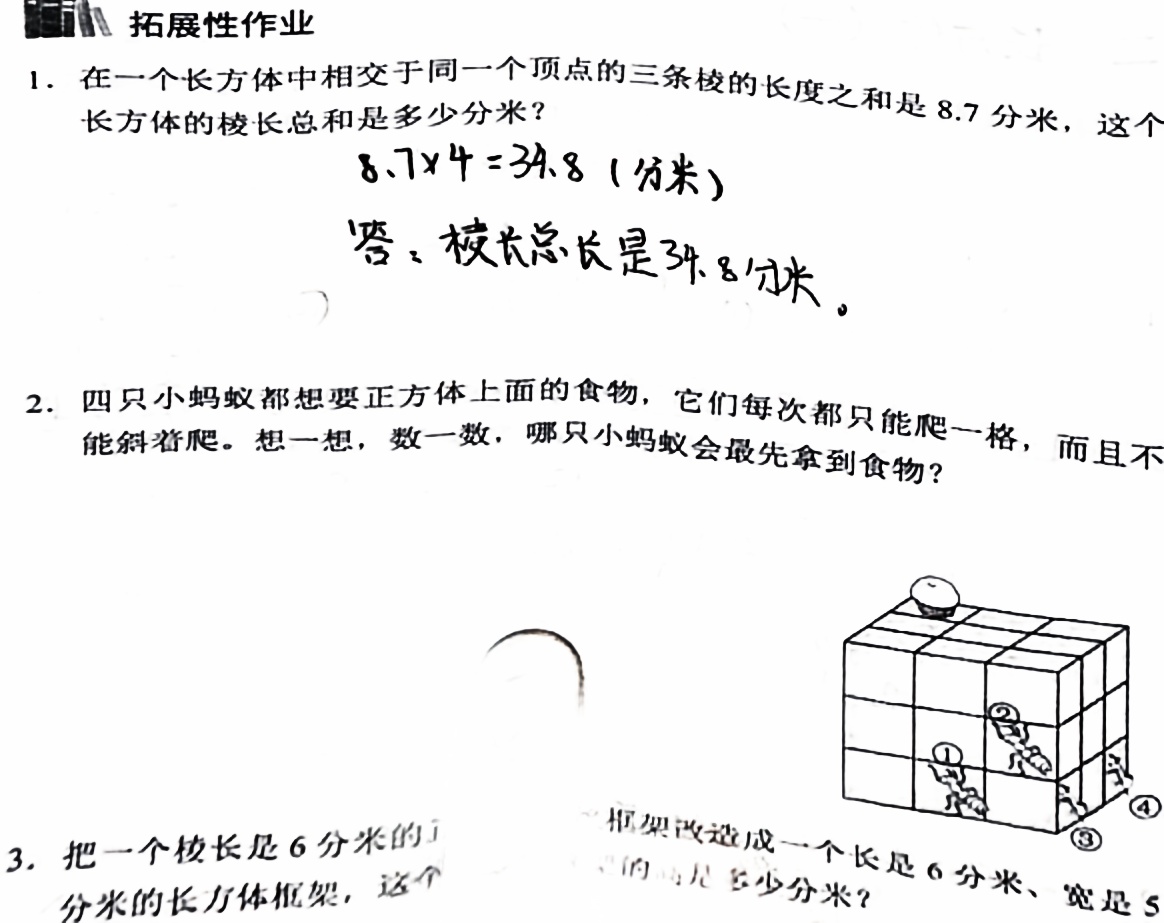 拓展性作业
1. 在一个长方体中相交于同一个顶点的三条棱的长度之和是 8.7 分米，这个
长方体的棱长总和是多少分米？
8.7×4=34.8（分米）
答：棱长总长是34.8分米。
2. 四只小蚂蚁都想要正方体上面的食物，它们每次都只能爬一格，而且不
能斜着爬。想一想，数一数，哪只小蚂蚁会最先拿到食物？
②
①
④
③
3. 把一个棱长是 6 分米的 框架改造成一个长是 6 分米、宽是 5
分米的长方体框架，这个 的 是多少分米？